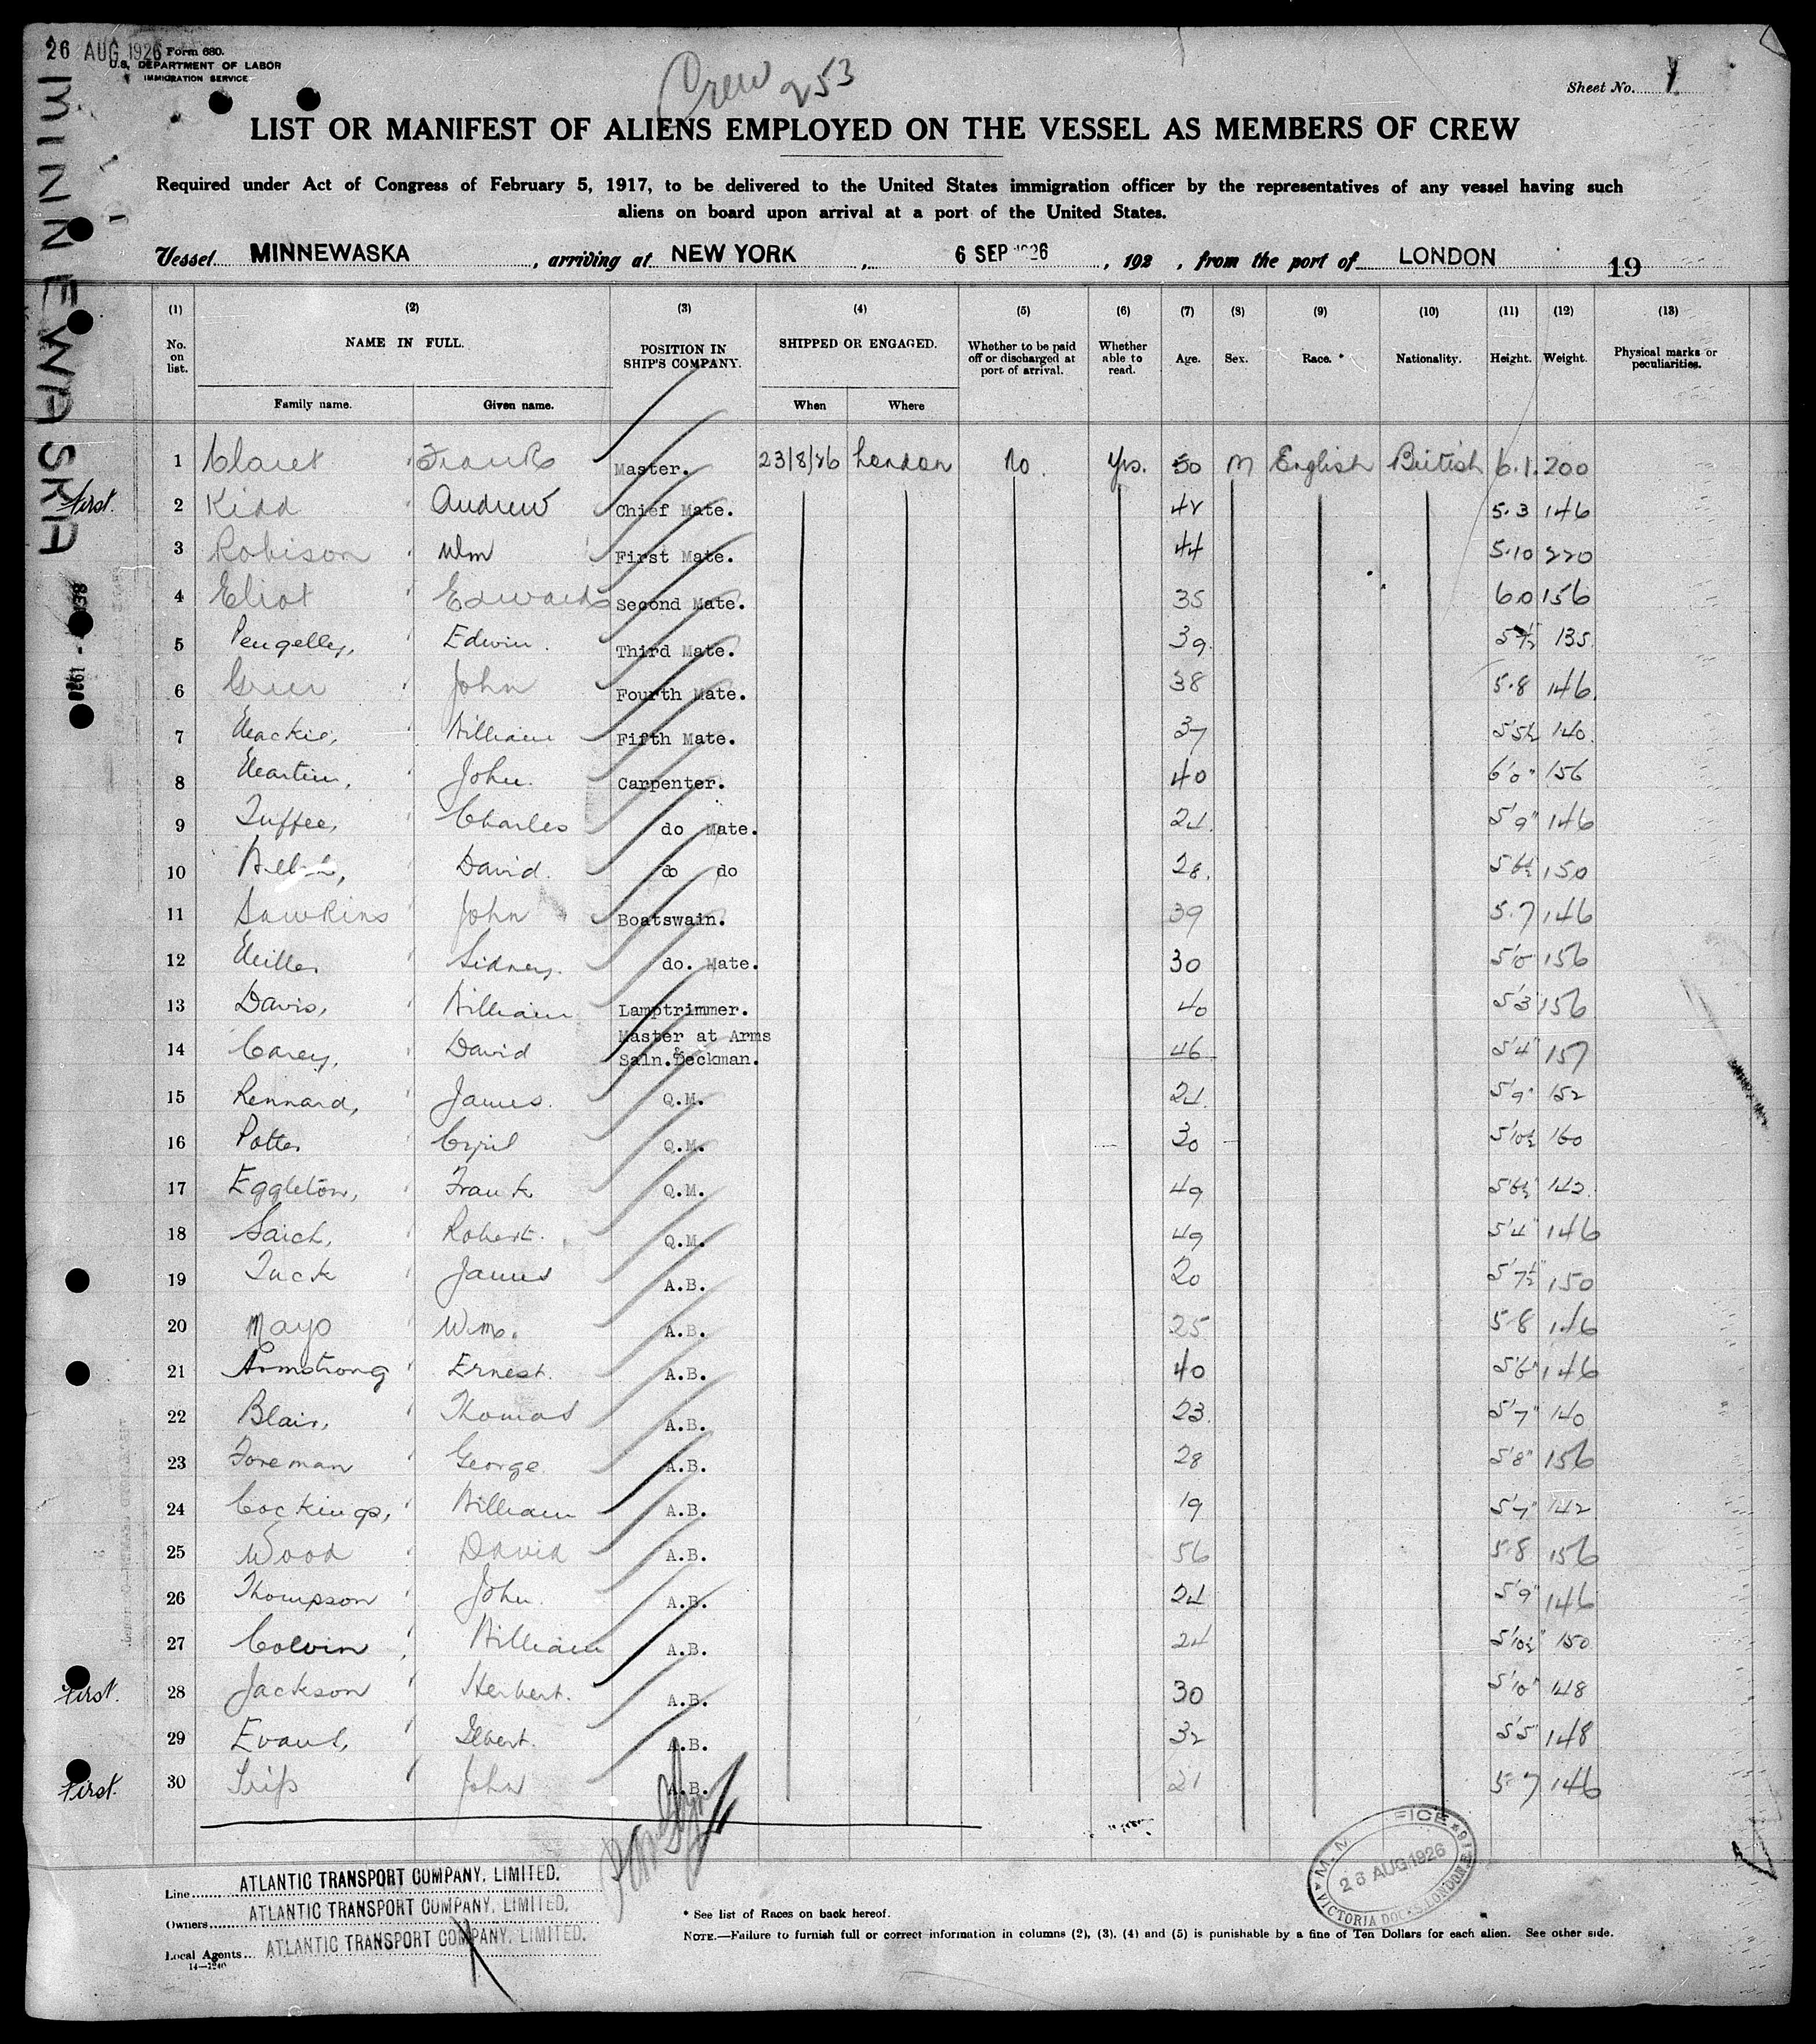 26 AUG 1926 Form 680.
U.S. DEPARTMENT OF LABOR
IMMIGRATION SERVICE
MINNEWASKA
Crew 253
Sheet No. 1
LIST OR MANIFEST OF ALIENS EMPLOYED ON THE VESSEL AS MEMBERS OF CREW
Required under Act of Congress of February 5, 1917, to be delivered to the United States immigration officer by the representatives of any vessel having such
aliens on board upon arrival at a port of the United States.
Vessel MINNEWASKA, arriving at NEW YORK, 6 SEP 1926, 192 , from the port of LONDON 19
(1) (2) (3) (4) (5) (6) (7) (8) (9) (10) (11) (12) (13)
No. on list. NAME IN FULL. POSITION IN SHIP'S COMPANY. SHIPPED OR ENGAGED. Whether to be paid off or discharged at port of arrival. Whether able to read. Age. Sex. Race.* Nationality. Height. Weight. Physical marks or peculiarities.
Family name. Given name. When Where
1 Claret Frank Master. 23/8/26 London No. Yes. 50 M English British 6.1. 200
First. 2 Kidd Andrew Chief Mate. 48 5.3 146
3 Robison Wm First Mate. 44 5.10 220
4 Eliot Edward Second Mate. 35 6.0 156
5 Pengelly, Edwin. Third Mate. 39. 5 7½ 135
6 Greer John Fourth Mate. 38 5.8 146.
7 Mackie, William Fifth Mate. 37 5'5½ 140.
8 Martin, John. Carpenter. 40 6'0" 156
9 Tuffee, Charles do Mate. 24. 5'9" 146
10 David. do do 28. 5'6½ 150
11 Dawkins John Boatswain. 39 5.7 146
12 Miller Sidney. do. Mate. 30 5'10 156
13 Davis, William Lamptrimmer. 40 5'3 156
14 Carey, David Master at Arms & Saln.Deckman. 46 5'4" 157
15 Rennard, James. Q.M. 24. 5'9" 152
16 Potter Cyril Q.M. 30 5'10½ 160
17 Eggleton, Frank Q.M. 49 5'6½" 142.
18 Saich, Robert. Q.M. 49 5'4" 146
19 Tuck James A.B. 20 5'7½" 150
20 Mayo Wm. A.B. 25 5.8 146
21 Armstrong Ernest. A.B. 40 5'6" 146
22 Blair, Thomas A.B. 23. 5'7" 140
23 Foreman George. A.B. 28 5'8" 156
24 Cockings, William A.B. 19 5'7" 142
25 Wood David A.B. 56 5.8 156
26 Thompson John. A.B. 24 5'9" 146
27 Colvin, William A.B. 24 5'10½" 150
First. 28 Jackson Herbert. A.B. 30 5'10" 148
29 Evans, A.B. 32 5'5" 148
First. 30 John A.B. 21 5.7 146
Line ATLANTIC TRANSPORT COMPANY, LIMITED.
Owners ATLANTIC TRANSPORT COMPANY, LIMITED.
Local Agents ATLANTIC TRANSPORT COMPANY, LIMITED.
14—1240
* See list of Races on back hereof.
NOTE.—Failure to furnish full or correct information in columns (2), (3), (4) and (5) is punishable by a fine of Ten Dollars for each alien. See other side.
26 AUG 1926
VICTORIA DOCKS, LONDON, E.16